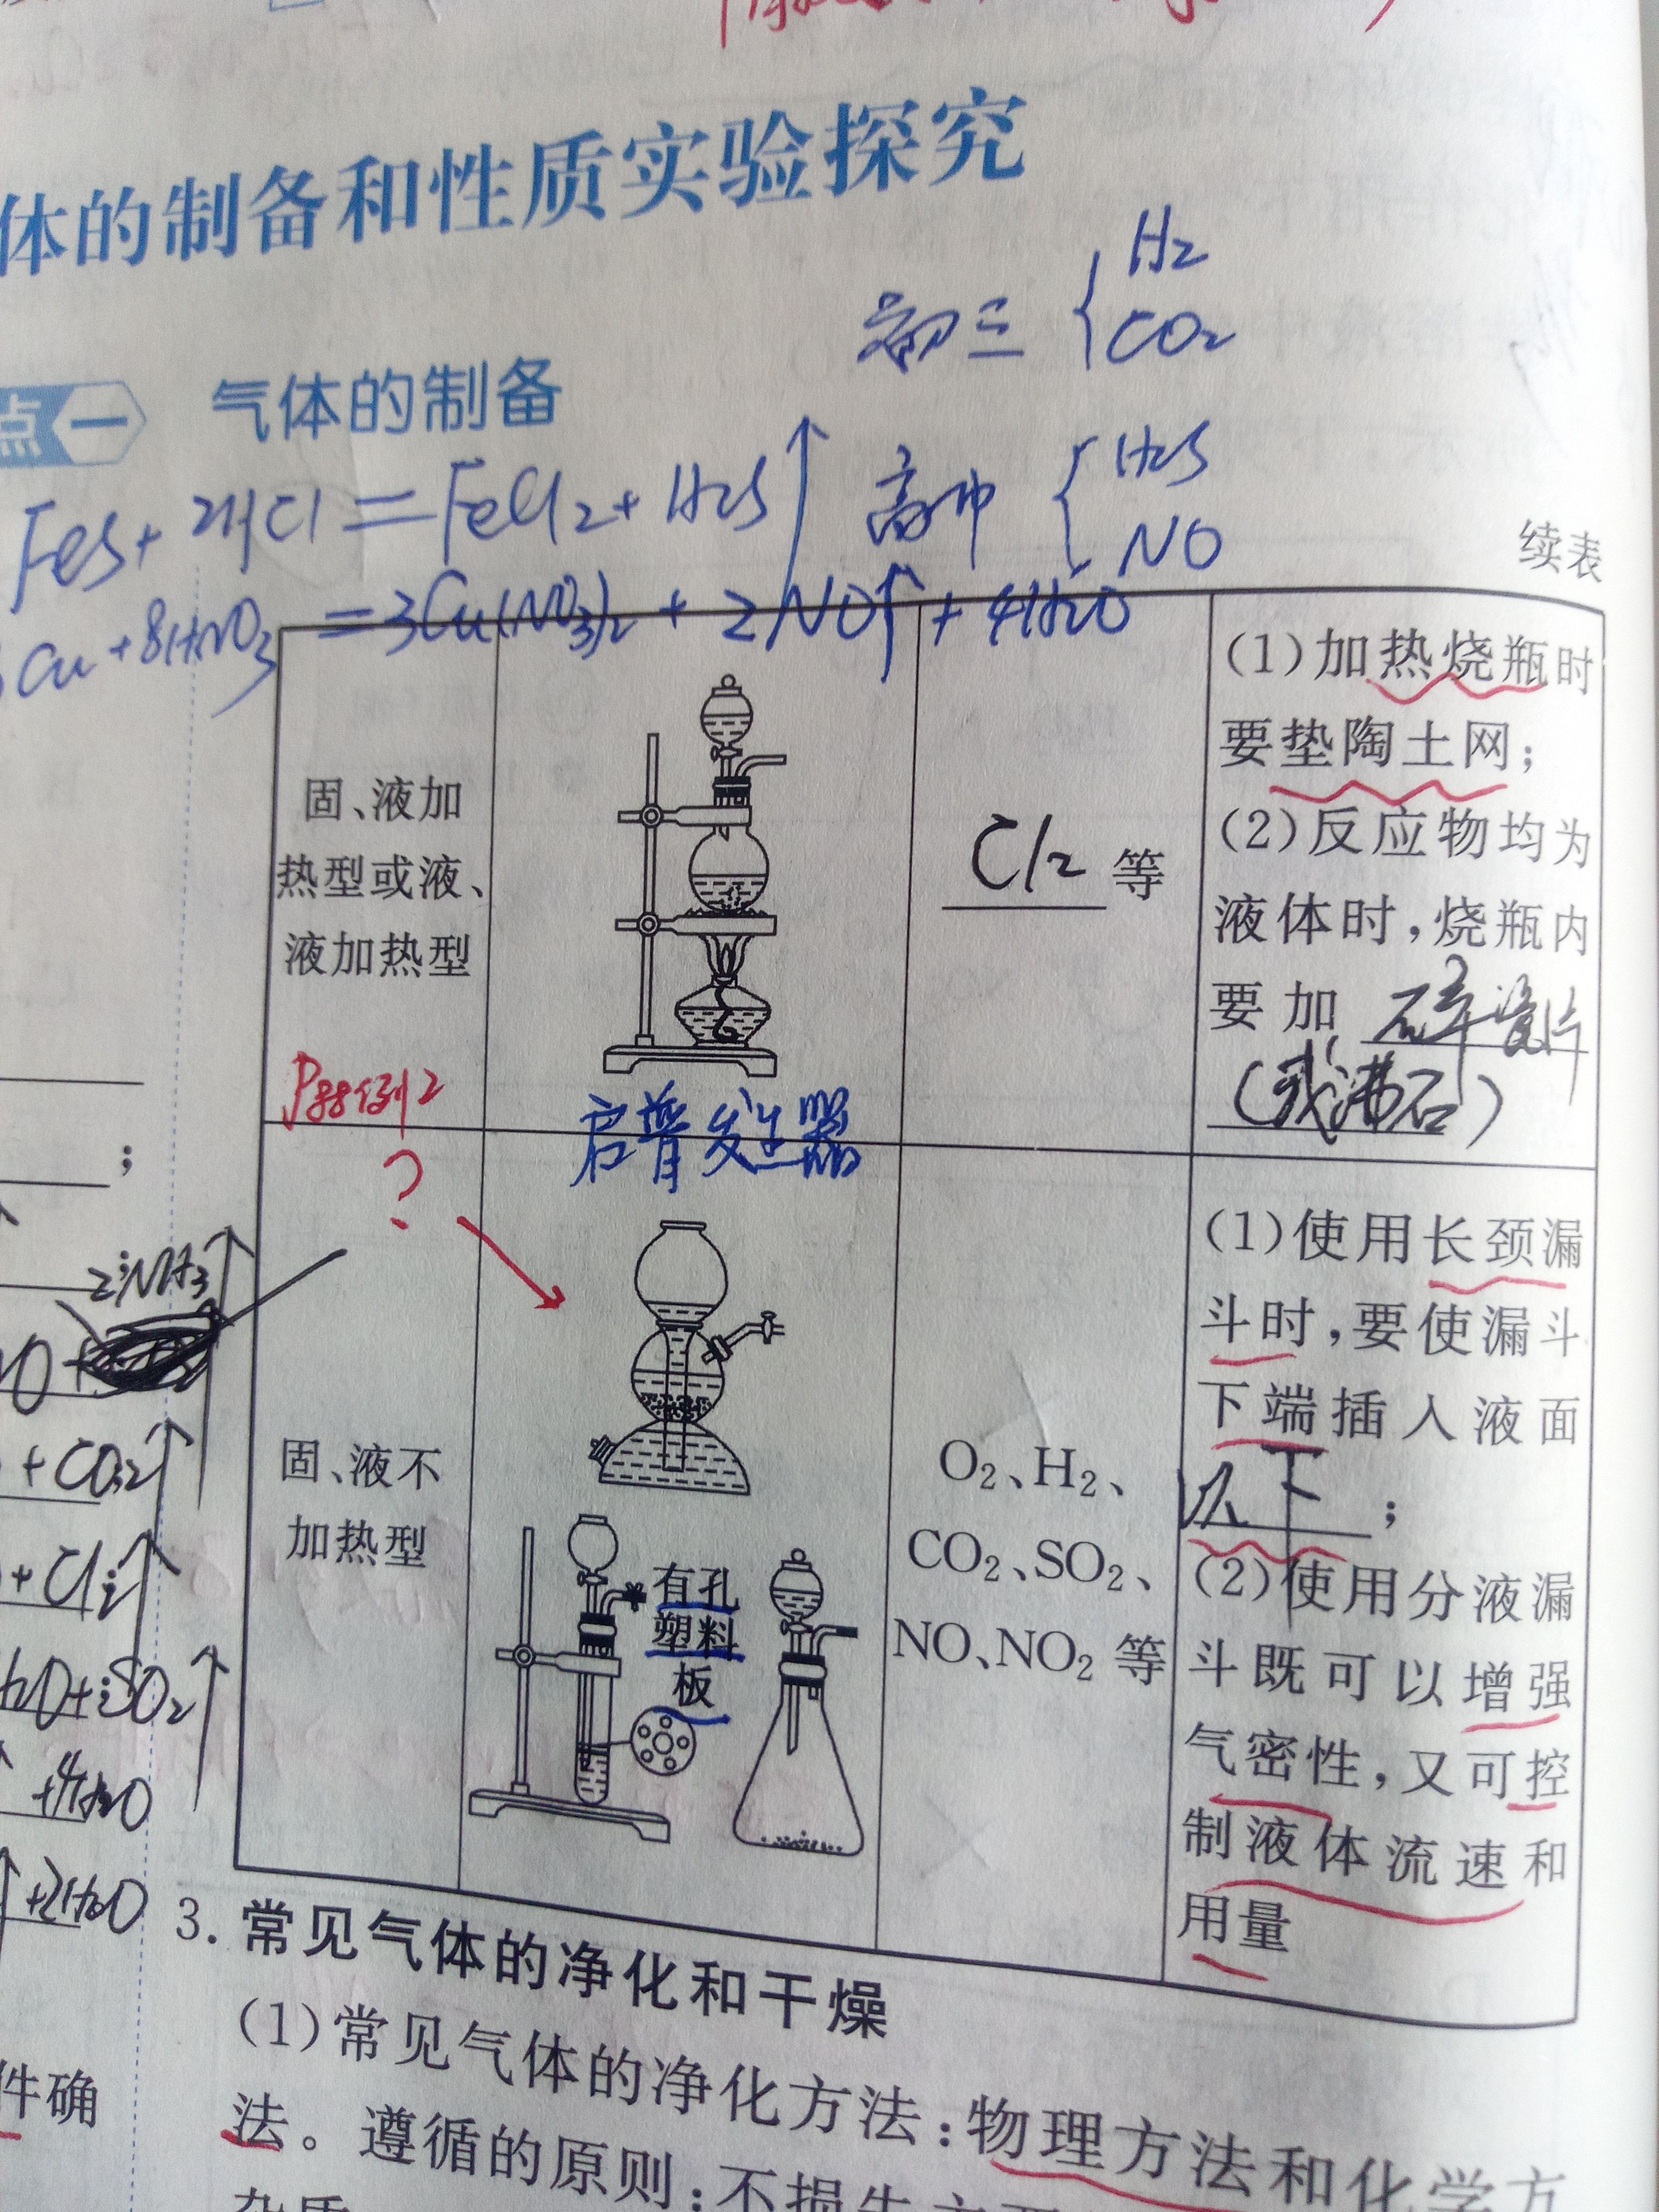 体的制备和性质实验探究
初三 { H2
CO2
点一 气体的制备
FeS + 2HCl = FeCl2 + H2S↑ 高中 { H2S
NO
续表
Cu + 8HNO3 = 3Cu(NO3)2 + 2NO↑ + 4H2O
固、液加
热型或液、
液加热型
P88例2
Cl2 等
(1)加热烧瓶时
要垫陶土网;
(2)反应物均为
液体时,烧瓶内
要加 碎瓷片
(或沸石)
启普发生器
?
固、液不
加热型
有孔
塑料
板
O2、H2、
CO2、SO2、
NO、NO2 等
(1)使用长颈漏
斗时,要使漏斗
下端插入液面
以下;
(2)使用分液漏
斗既可以增强
气密性,又可控
制液体流速和
用量
;
2NH3↑
+CO2↑
+Cl2↑
+SO2↑
+4H2O
↑+2H2O
3. 常见气体的净化和干燥
(1)常见气体的净化方法:物理方法和化学方
法。遵循的原则:不损失主要
件确